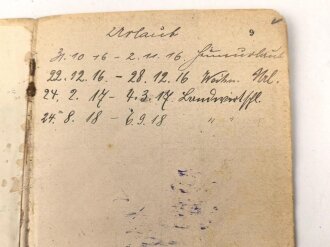 Urlaub
9
31.10.16 - 2.11.16
22.12.16. - 28.12.16 Weihn. Url.
24. 2. 17 - 4.3.17 Landwirtschl.
24. 8. 18 - 6.9.18 " "